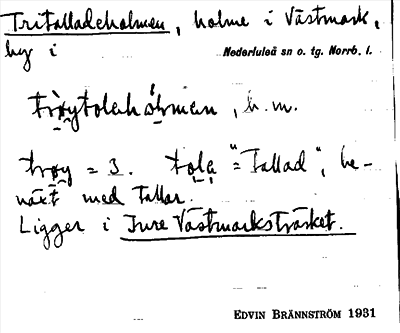 Tritalladeholmen, holme i Västmark,
by i Nederluleå sn o. tg. Norrb. l.
trøytolahólmen, b. m.
trøy = 3. tola "= Tallad", be-
näxt med tallar.
Ligger i Inre Västmarksträsket.
EDVIN BRÄNNSTRÖM 1931